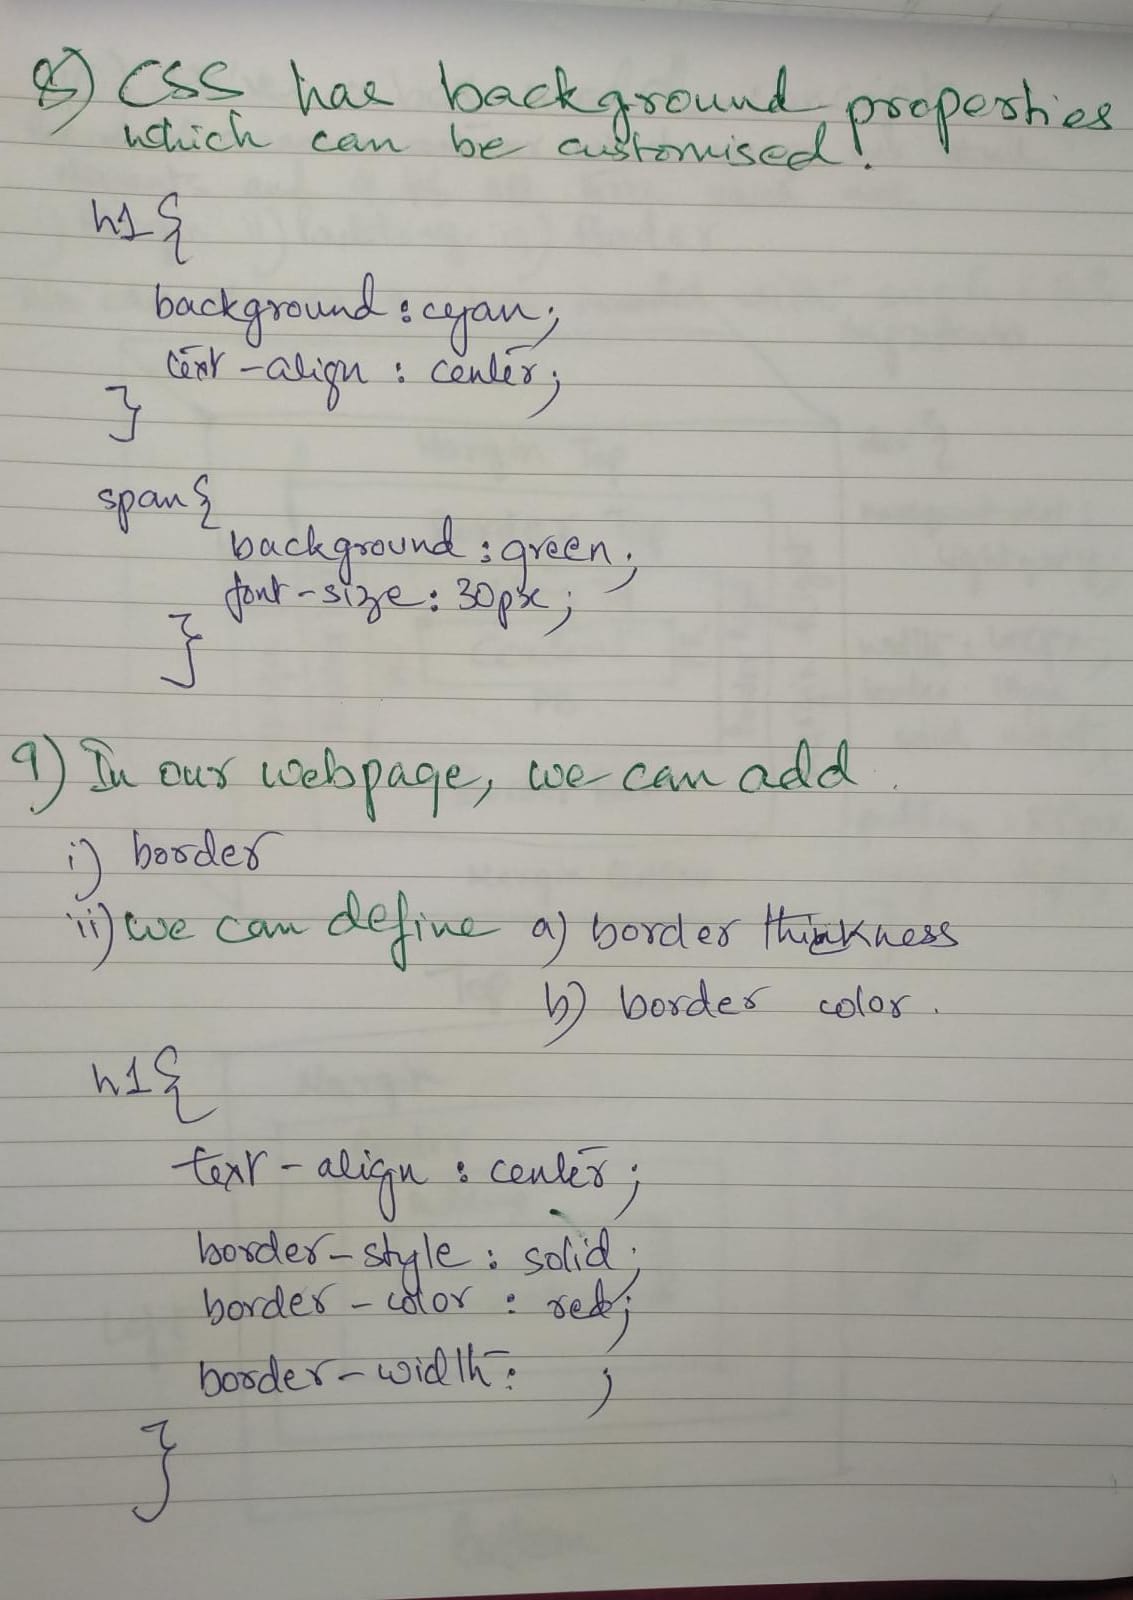 8) CSS has background properties
which can be customised!
h1{
background : cyan;
text-align : center;
}
span{
background : green;
font-size : 30px;
}
9) In our webpage, we can add
i) border
ii) we can define a) border thickness
b) border color.
h1{
text-align : center;
border-style : solid;
border-color : red;
border-width : ;
}